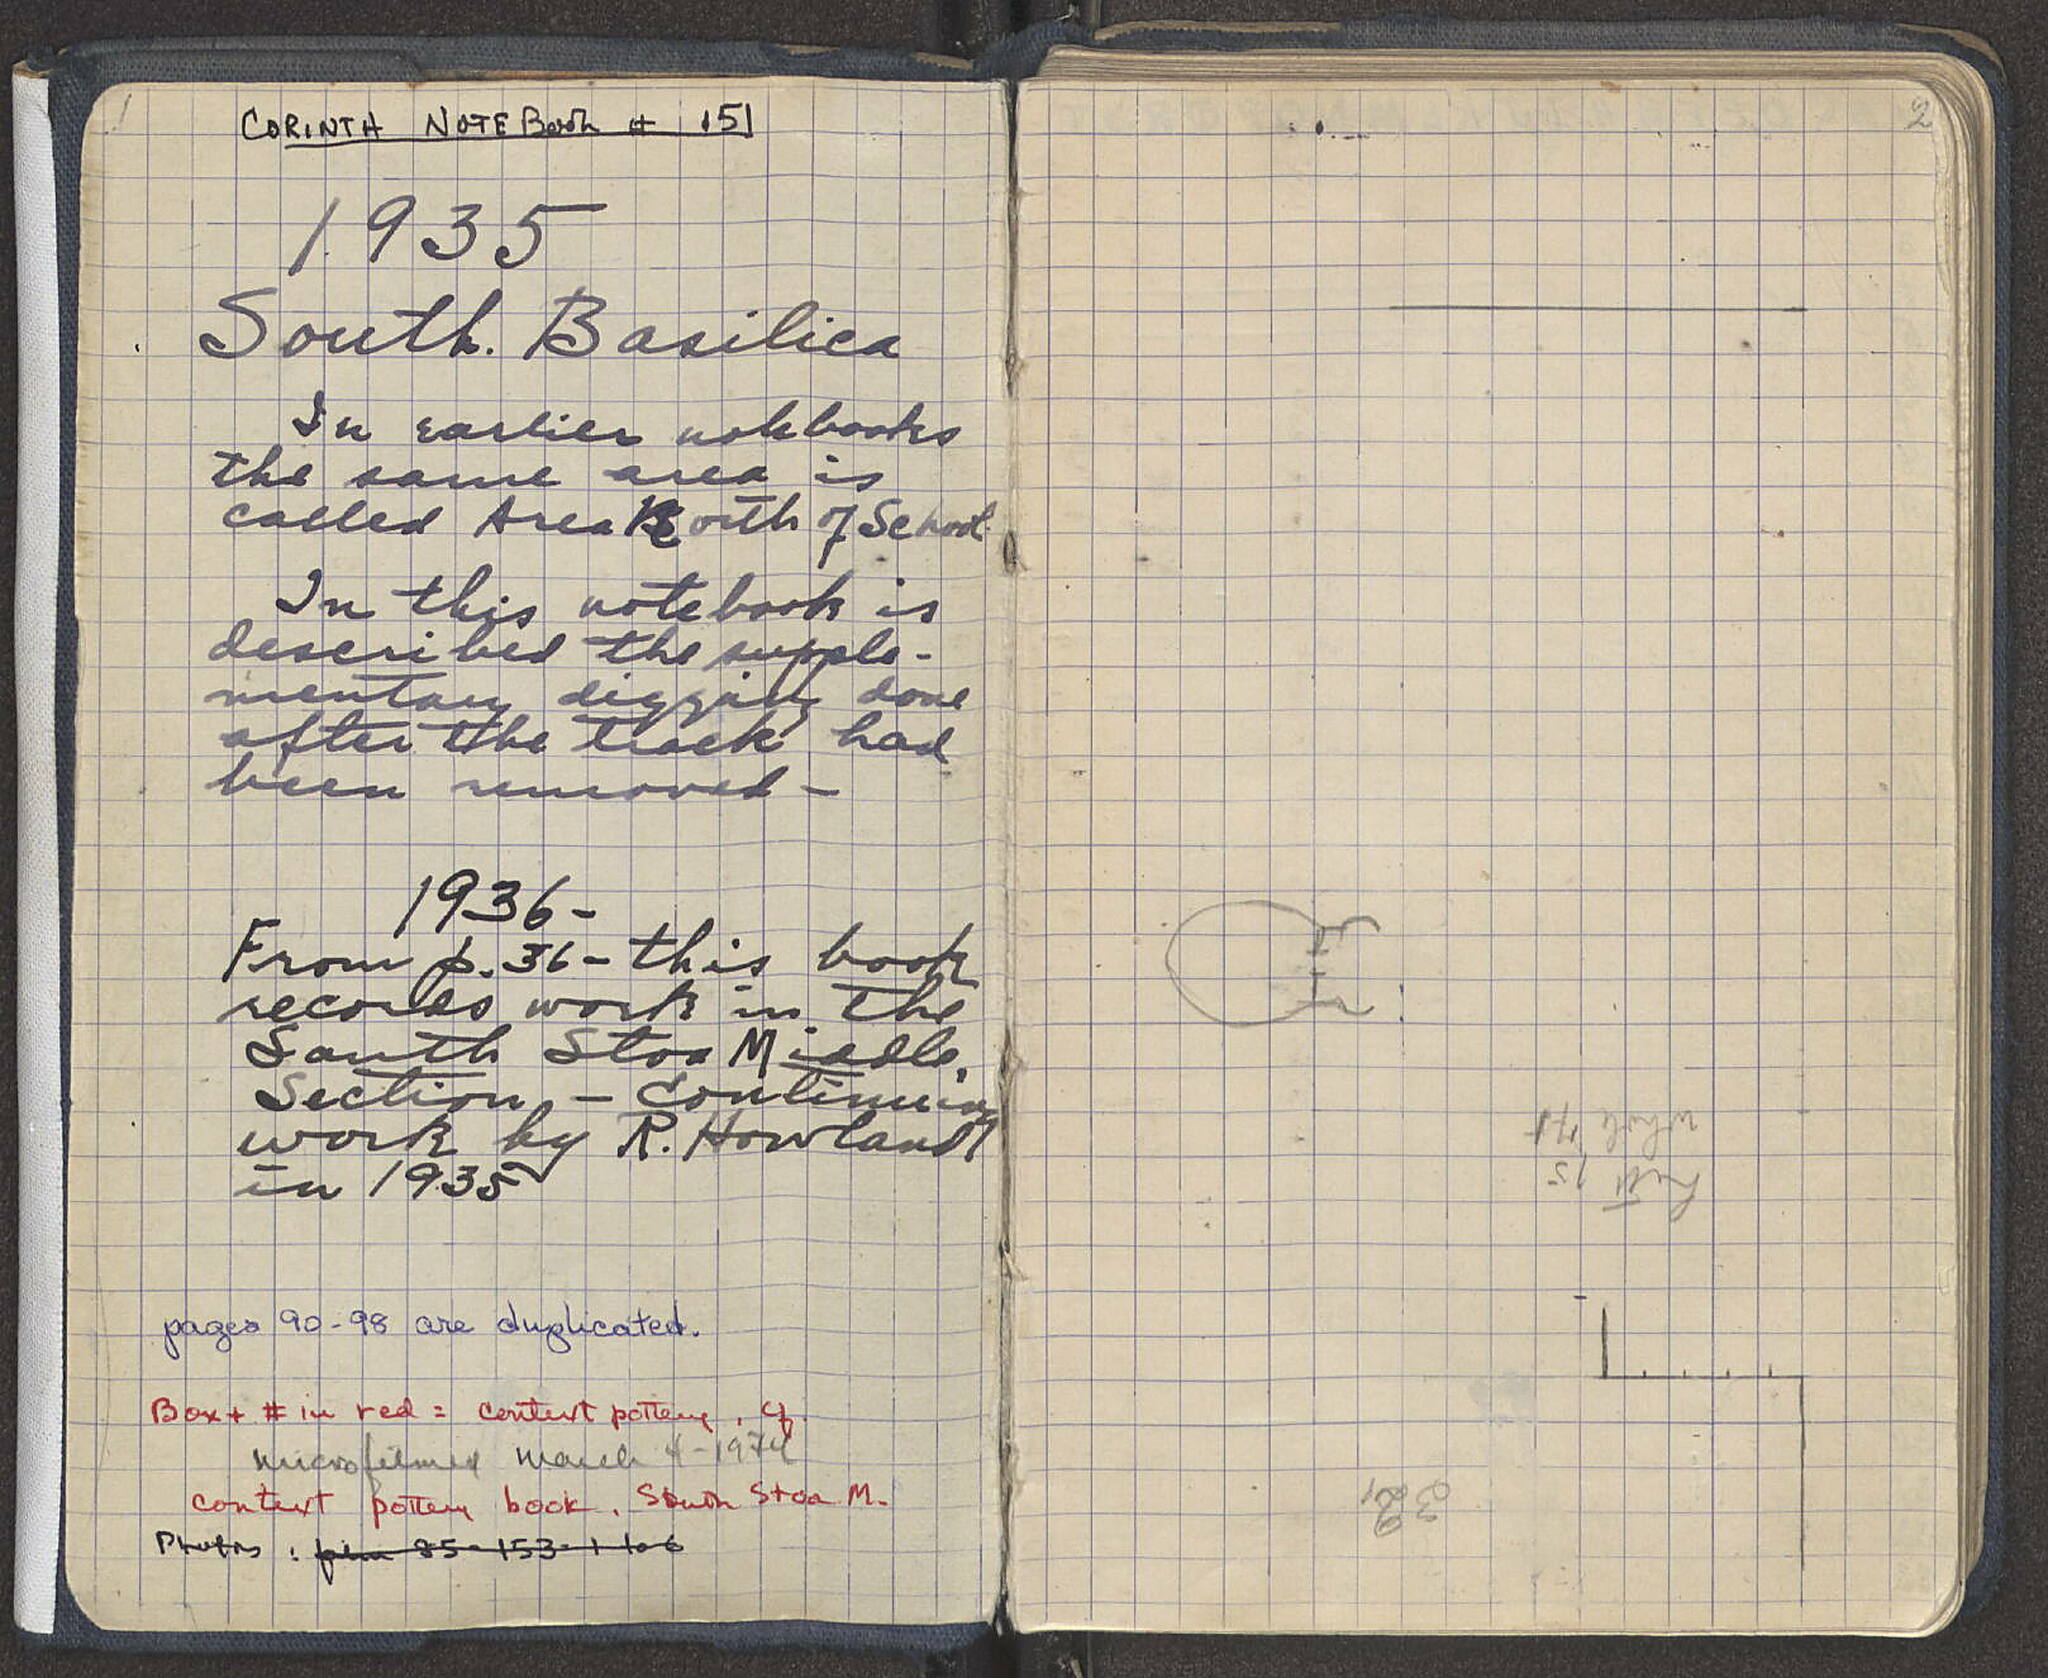 1
CORINTH NOTEBook # 151
1935
South Basilica
In earlier notebooks
the same area is
called Area North of School
In this notebook is
described the supple-
mentary digging done
after the track had
been removed -
1936 -
From p. 36 - this book
records work in the
South Stoa Middle
Section - Continuing
work by R. Howland
in 1935
pages 90-98 are duplicated.
Box + # in red = context pottery, cf.
microfilmed March 4-1974
context pottery book, South Stoa M.
Photos : film 85-153-1 to 6
2
whole